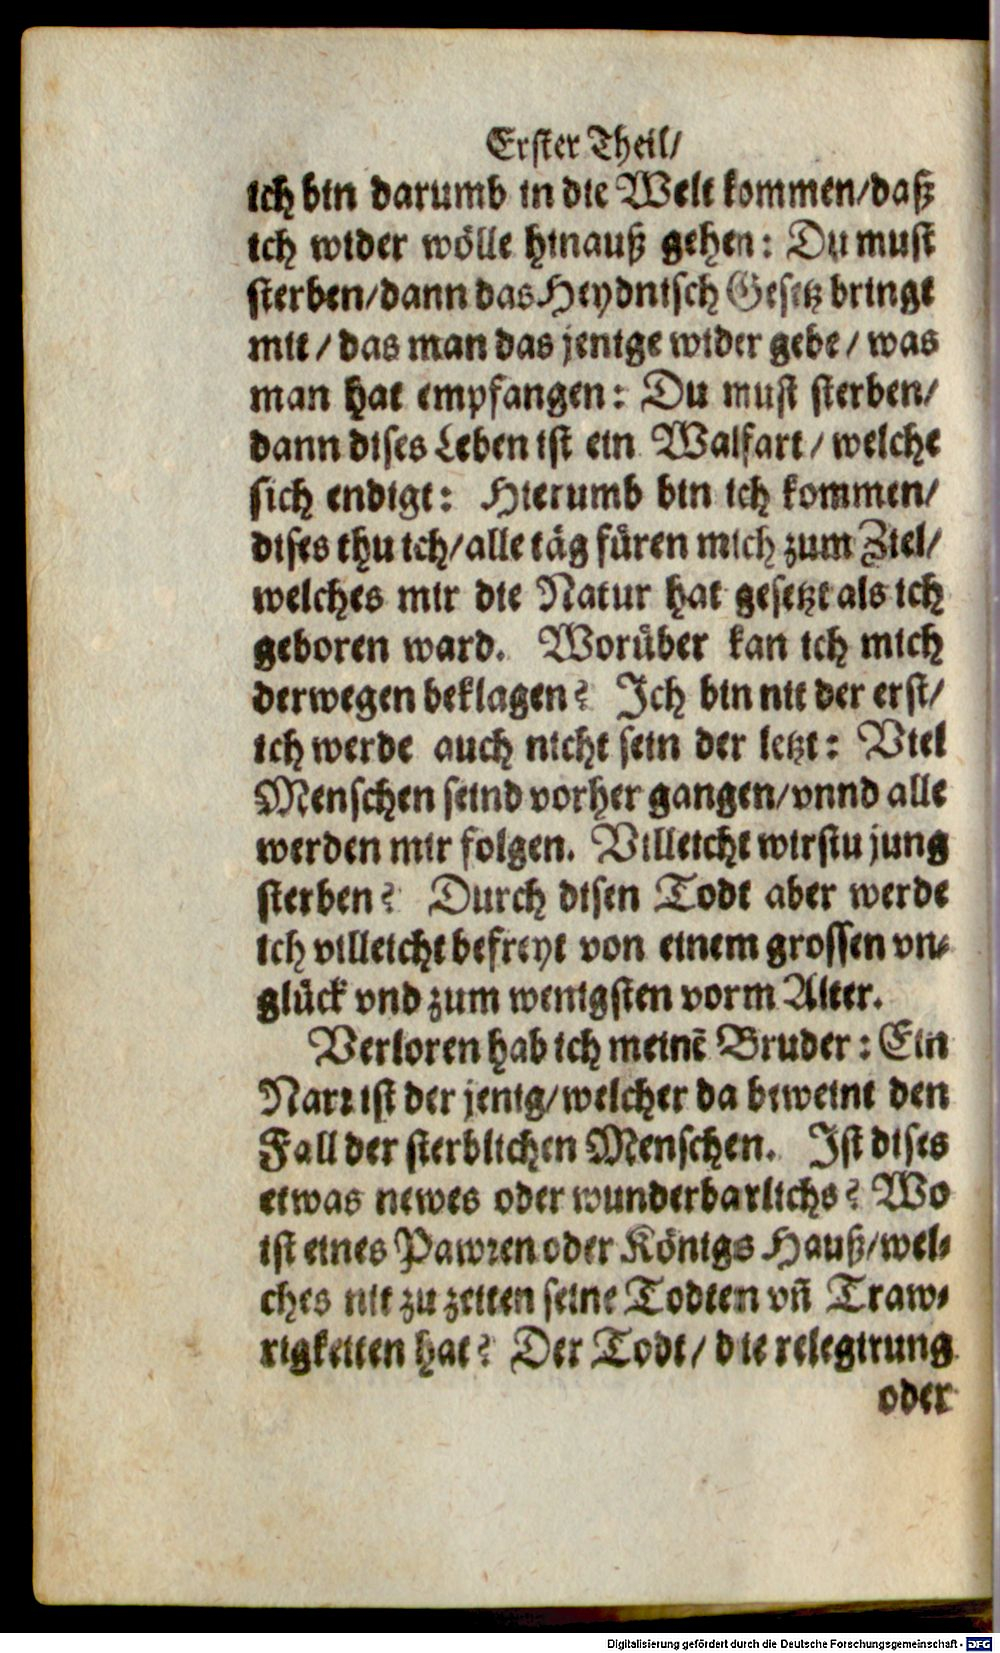 Erster Theil/
ich bin darumb in die Welt kommen/daß
ich wider wölle hinauß gehen: Du must
sterben/dann das Heydnisch Gesetz bringt
mit / das man das jenige wider gebe / was
man hat empfangen: Du must sterben/
dann dises Leben ist ein Walfart / welche
sich endigt: Hierumb bin ich kommen/
dises thu ich/alle täg füren mich zum Ziel/
welches mir die Natur hat gesetzt als ich
geboren ward. Worüber kan ich mich
derwegen beklagen? Ich bin nit der erst/
ich werde auch nicht sein der letzt: Viel
Menschen seind vorher gangen/vnnd alle
werden mir folgen. Villeicht wirstu jung
sterben? Durch disen Todt aber werde
ich villeicht befreyt von einem grossen vn-
glück vnd zum wenigsten vorm Alter.
Verloren hab ich meinē Bruder: Ein
Narr ist der jenig/welcher da beweint den
Fall der sterblichen Menschen. Ist dises
etwas newes oder wunderbarlichs? Wo
ist eines Pawren oder Königs Hauß/wel-
ches nit zu zeiten seine Todten vñ Traw-
rigkeiten hat? Der Todt/ die relegirung
oder
Digitalisierung gefördert durch die Deutsche Forschungsgemeinschaft - DFG